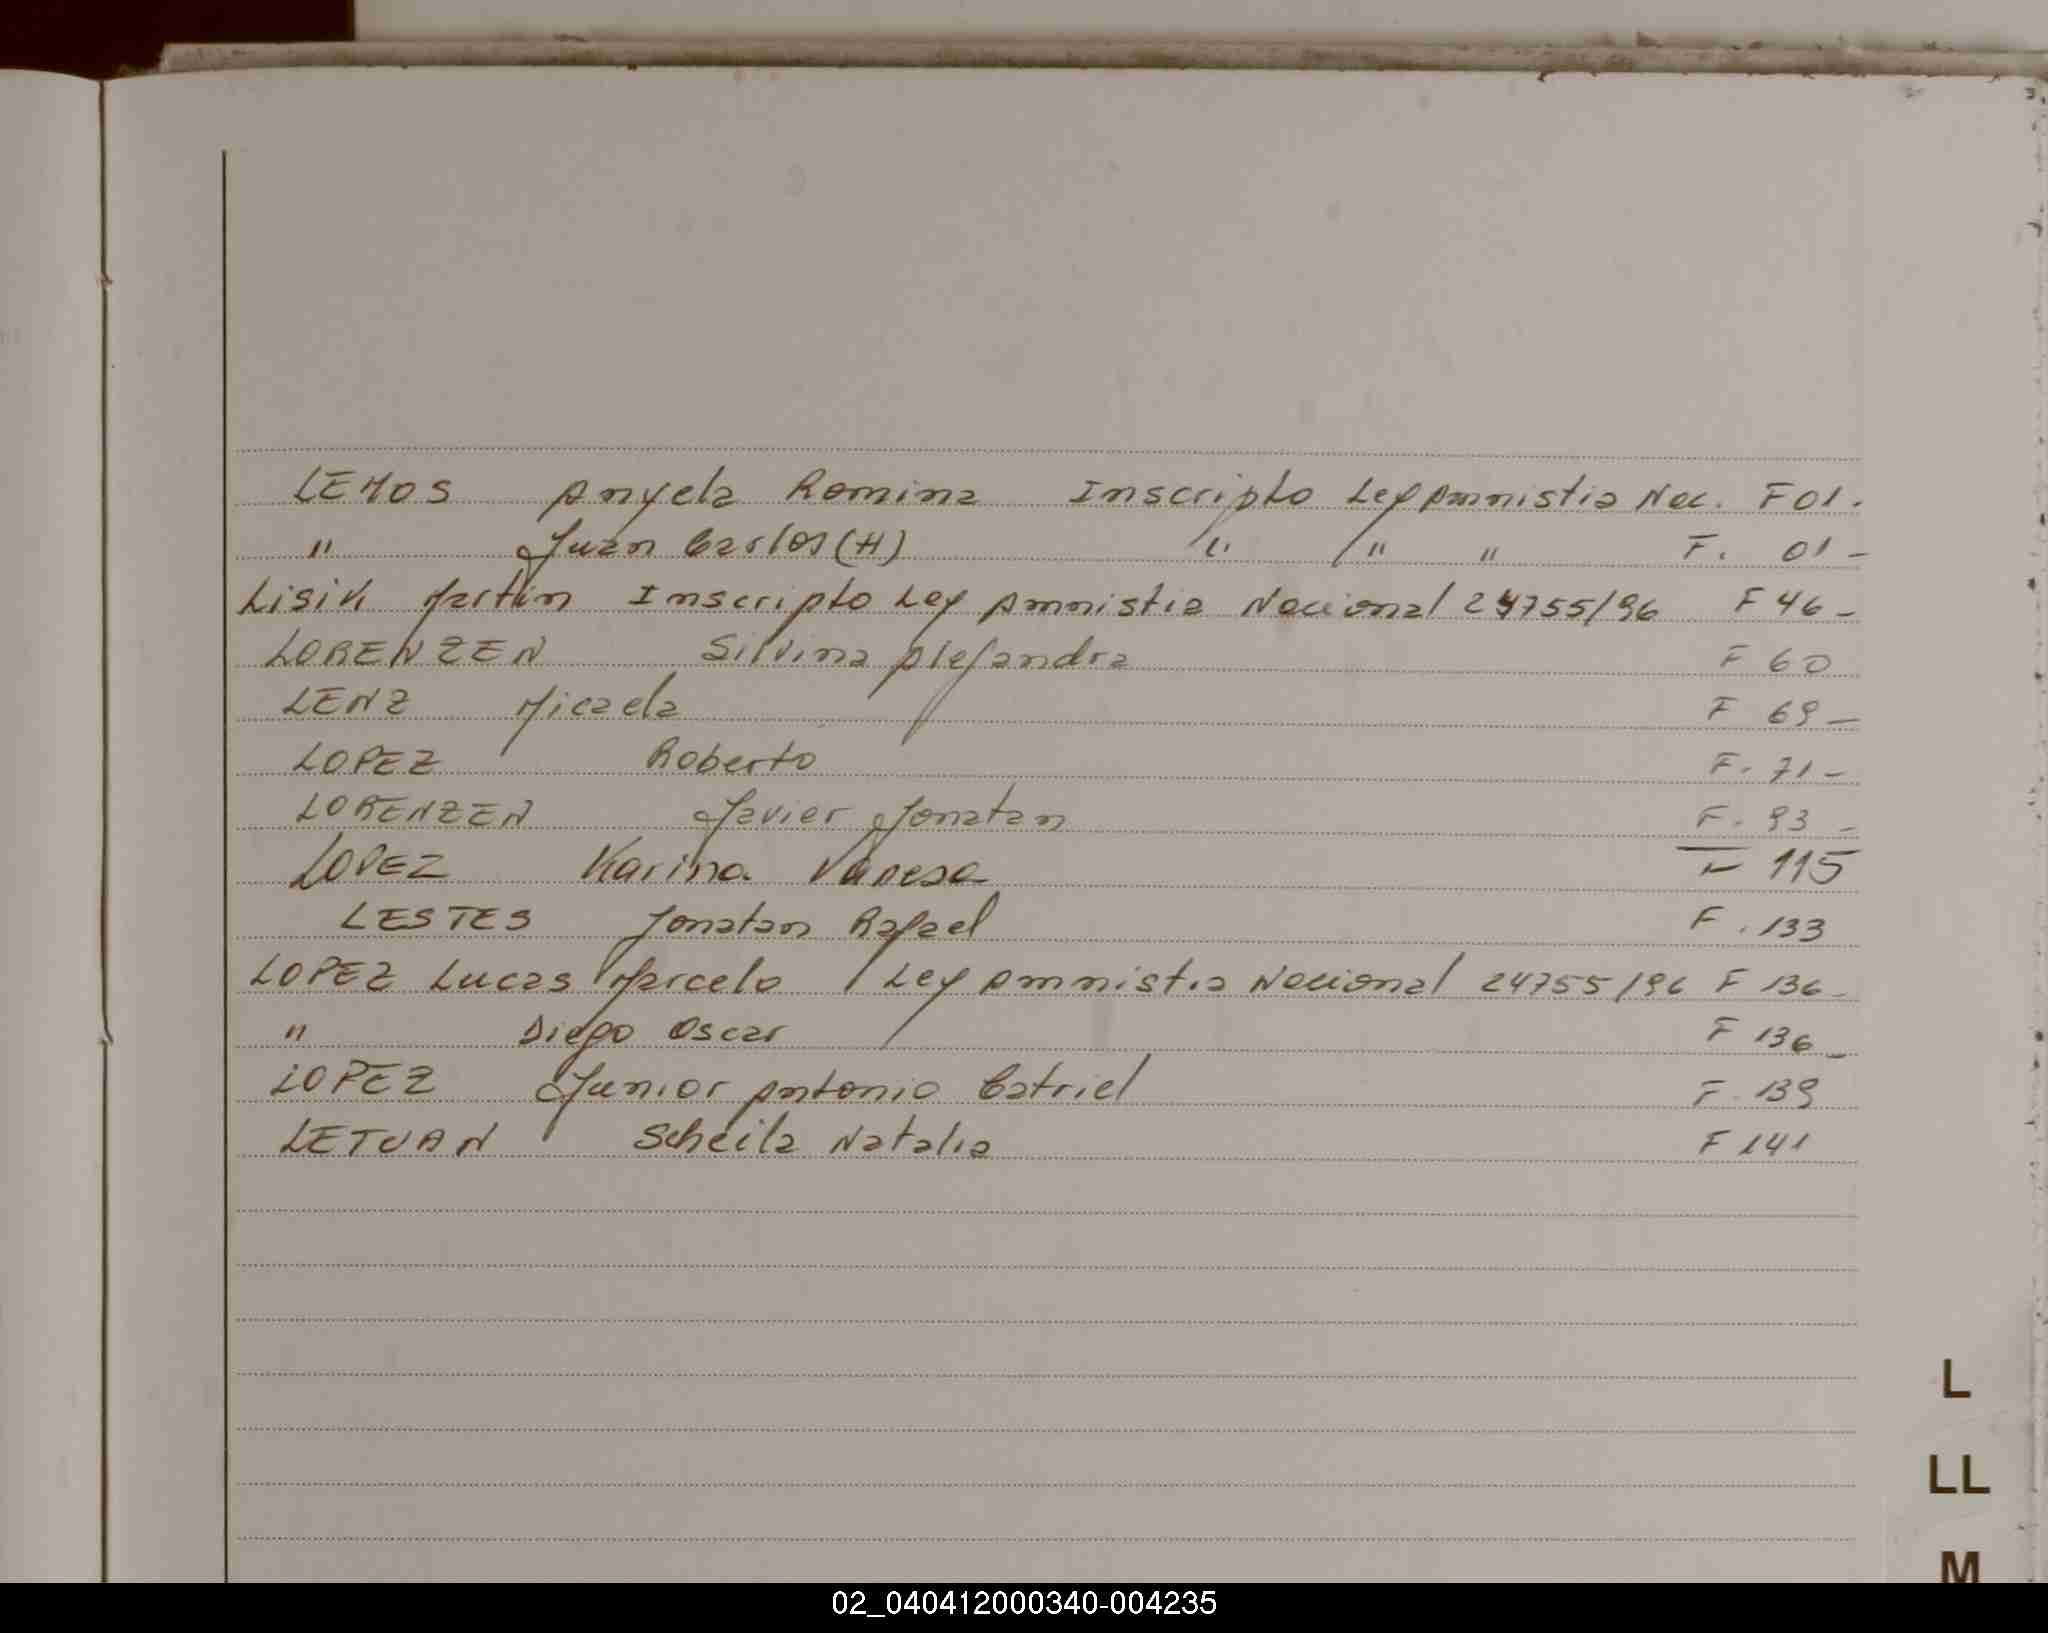 LEMOS Anyela Romina Inscripto Ley Amnistia Nac. F 01.
" Juan Carlos (H) " " " F. 01-
Lisik Martin Inscripto Ley Amnistia Nacional 24755/96 F 46-
LORENZEN Silvina Alejandra F 60
LENZ Micaela F 69-
LOPEZ Roberto F. 71-
LORENZEN Javier Jonatan F. 93-
LOPEZ Karina Vanesa F 115
LESTES Jonatan Rafael F. 133
LOPEZ Lucas Marcelo / Ley Amnistia Nacional 24755/96 F 136-
" Diego Oscar F 136-
LOPEZ Junior Antonio Catriel F. 139
LETUAN Scheila Natalia F 141
L
LL
M
02_040412000340-004235